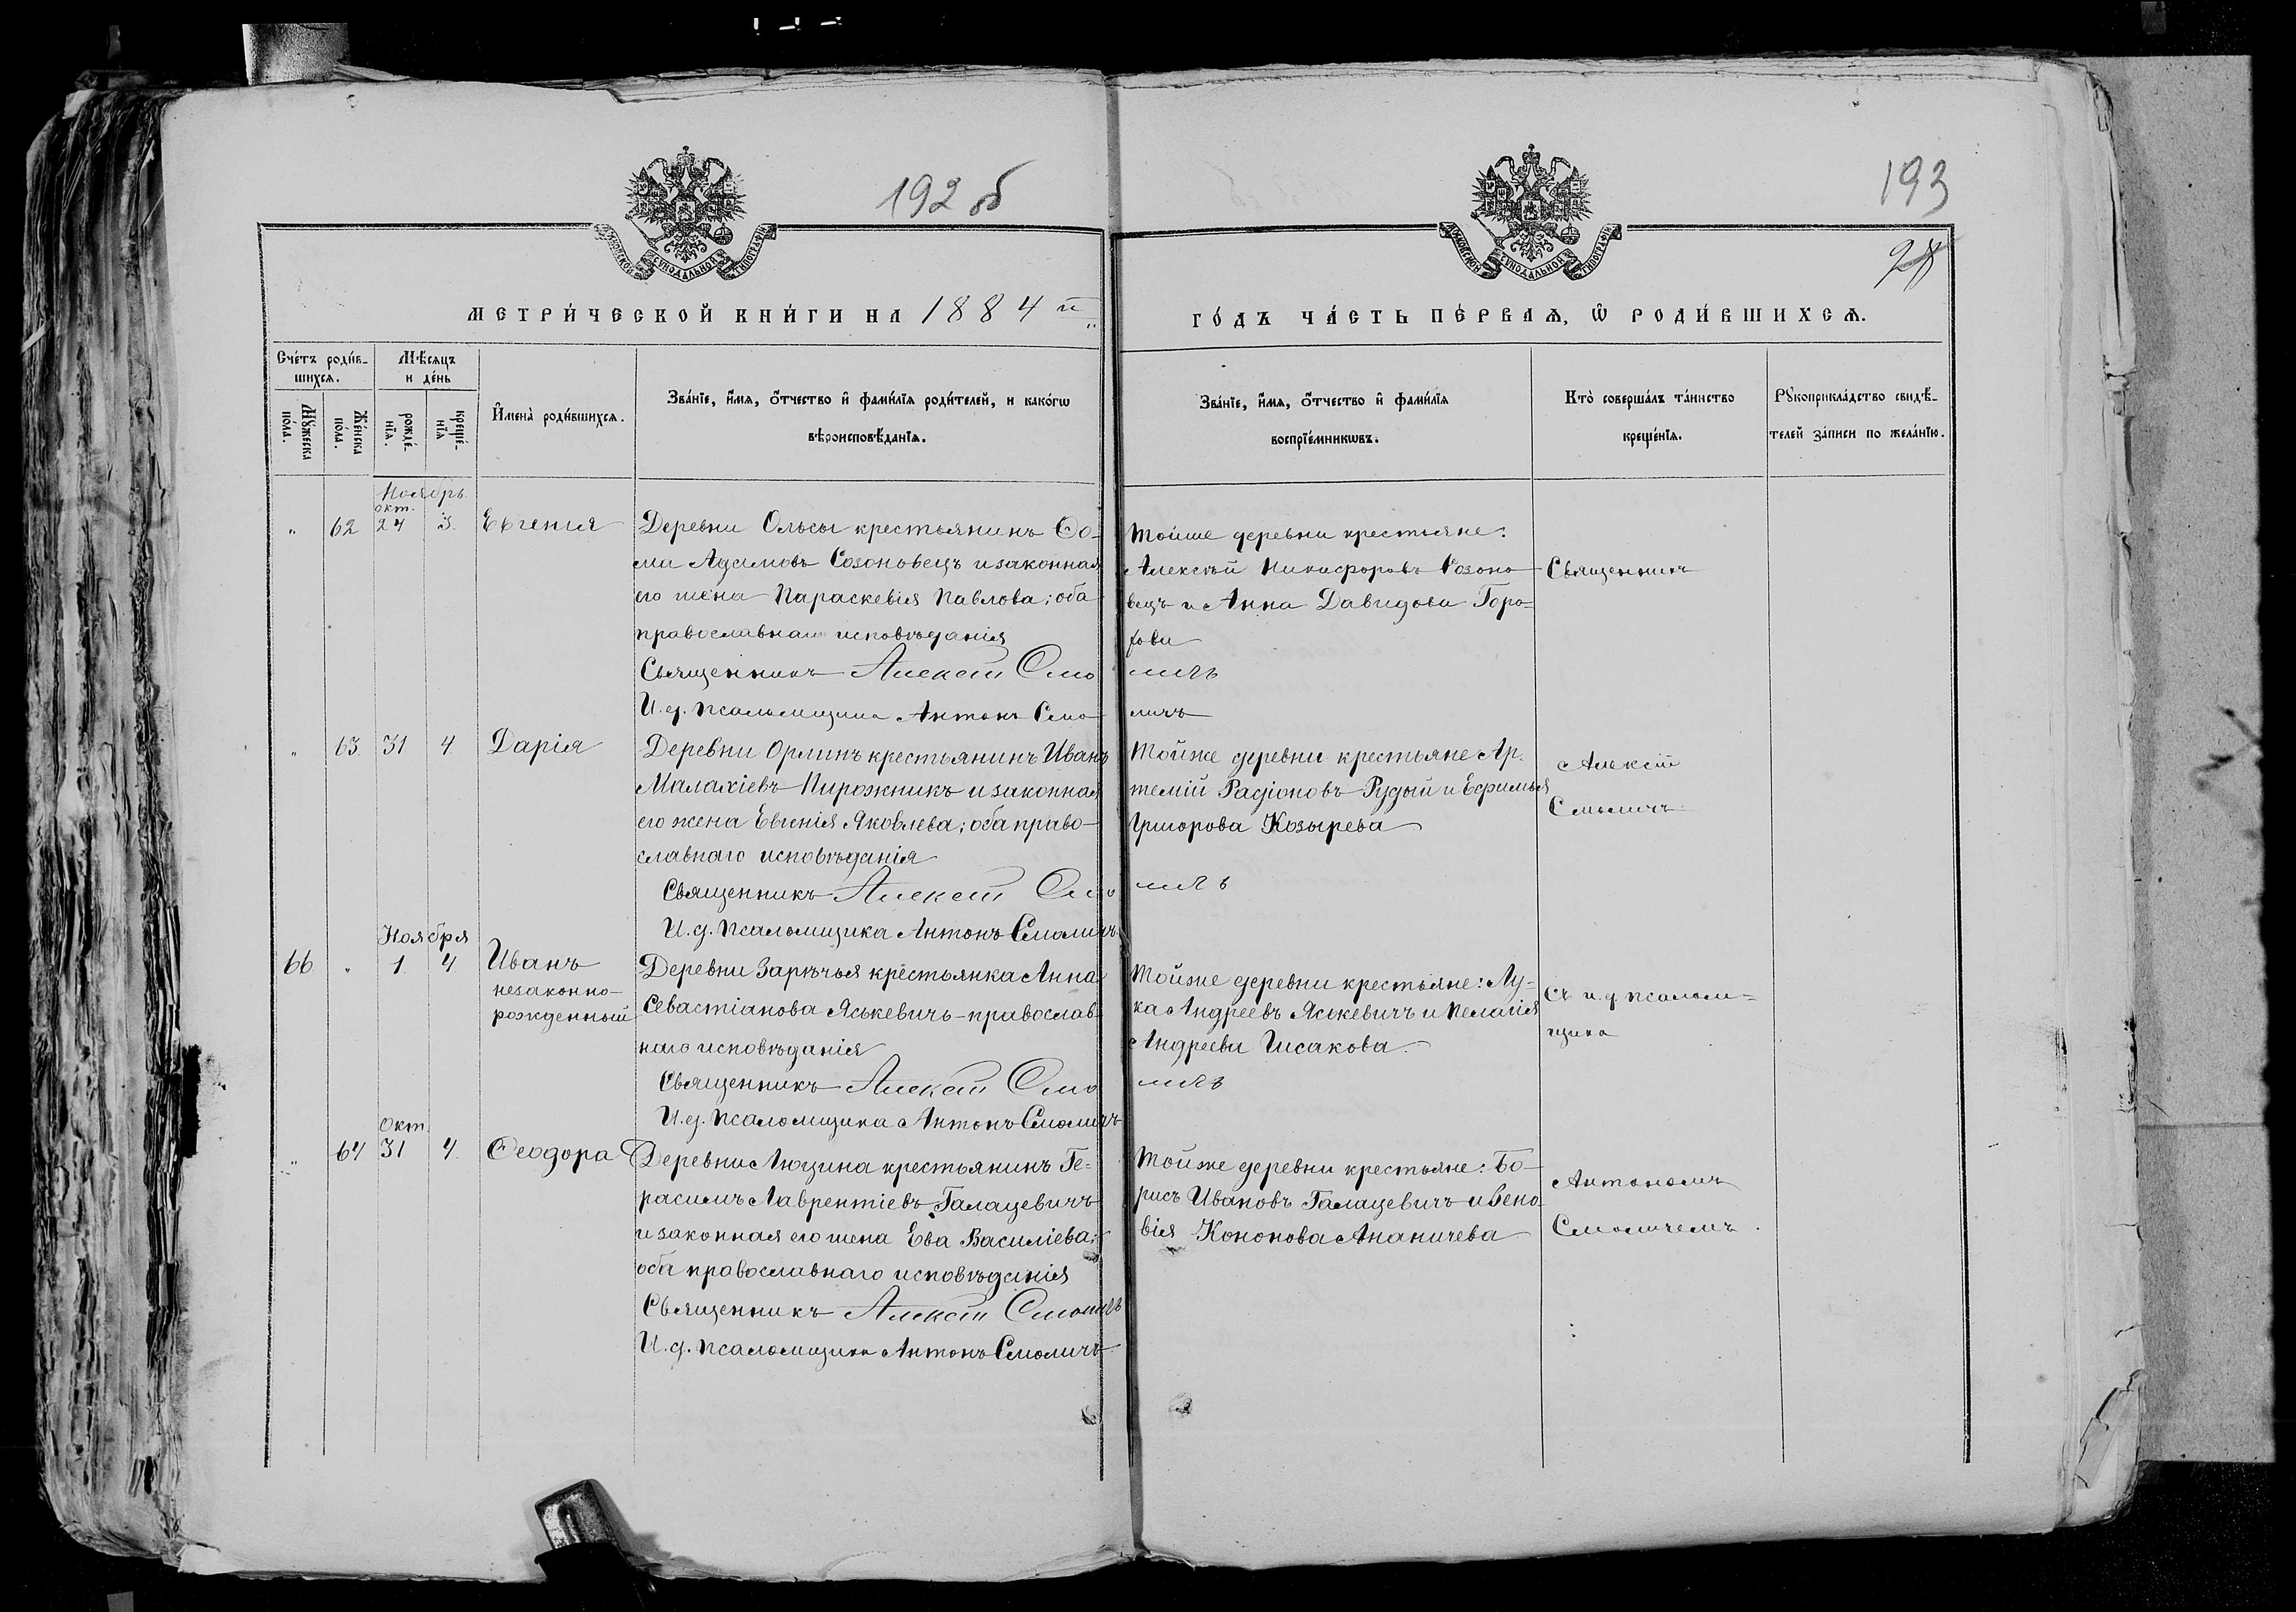 192 об
193
28
МОСКОВСКОЙ СѴНОДАЛЬНОЙ ТИПОГРАФІИ
МОСКОВСКОЙ СѴНОДАЛЬНОЙ ТИПОГРАФІИ
МЕТРИ́ЧЕСКОЙ КНИ́ГИ НА 1884 й
ГО́ДЪ ЧА́СТЬ ПЕ́РВАѦ, Ѿ РОДИ́ВШИХСѦ.
Сче́тъ роди́в-
шихсѧ.
Мꙋ́жеска
по́ла.
Же́нска
по́ла.
Мѣ́сѧцъ
и де́нь
рожде́-
нїѧ.
креще́-
нїѧ
И҆мена̀ роди́вшихсѧ.
Зва́нїе, и҆́мѧ, ѻ҆́тчество и҆ фами́лїѧ роди́телей, и како́гѡ
вѣроисповѣ́данїѧ.
Зва́нїе, и҆́мѧ, ѻ҆́тчество и҆ фами́лїѧ
воспрїе́мникѡвъ.
Кто̀ соверша́лъ та́инство
креще́нїѧ.
Рꙋкоприкла́дство свидѣ́-
телей за́писи по жела́нїю.
Ноябрь
окт.
" 62 24 3. Евгенія
Деревни Ольсы крестьянинъ Ѳо-
ма Адамовъ Созоновецъ и законная
его жена Параскевія Павлова; оба
православнаго исповѣданія
Священникъ Алексѣй Смо
И. д. псаломщика Антонъ Смо
Тойже деревни крестьяне:
Алексѣй Никифоровъ Созоно
вецъ и Анна Давидова Горо-
хова
личъ
личъ
Священникъ
" 63. 31 4 Дарія
Деревни Орлинъ крестьянинъ Иванъ
Малахіевъ Пирожникъ и законная
его жена Евгенія Яковлева; оба право-
славнаго исповѣданія
Священникъ Алексѣй Смо
И. д. псаломщика Антонъ Смоличъ.
Тойже деревни крестьяне Ар-
темій Радіоновъ Рудый и Ефимья
Григорова Козырева
личъ
Алексѣй
Смоличъ
Ноября
66 " 1. 4 Иванъ
незаконно-
рожденный
Деревни Зарѣчья крестьянка Анна
Севастіанова Яськевичъ-православ-
наго исповѣданія
Священникъ Алексѣй Смо
И. д. псаломщика Антонъ Смоличъ
Тойже деревни крестьяне: Лу-
ка Андреевъ Яськевичъ и Пелагія
Андреева Гисакова.
личъ
Съ и. д. псалом-
щика
Окт.
" 64 31 4 Ѳеодора
Деревни Люцина крестьянинъ Ге-
расимъ Лаврентіевъ Галацевичъ
и законная его жена Ева Василіева;
оба православнаго исповѣданія
Священникъ Алексѣй Смоличъ
И. д. псаломщика Антонъ Смоличъ
Тойже деревни крестьяне: Бо-
рисъ Ивановъ Галацевичъ и Зено-
вія Кононова Ананичева
Антономъ
Смоличемъ.